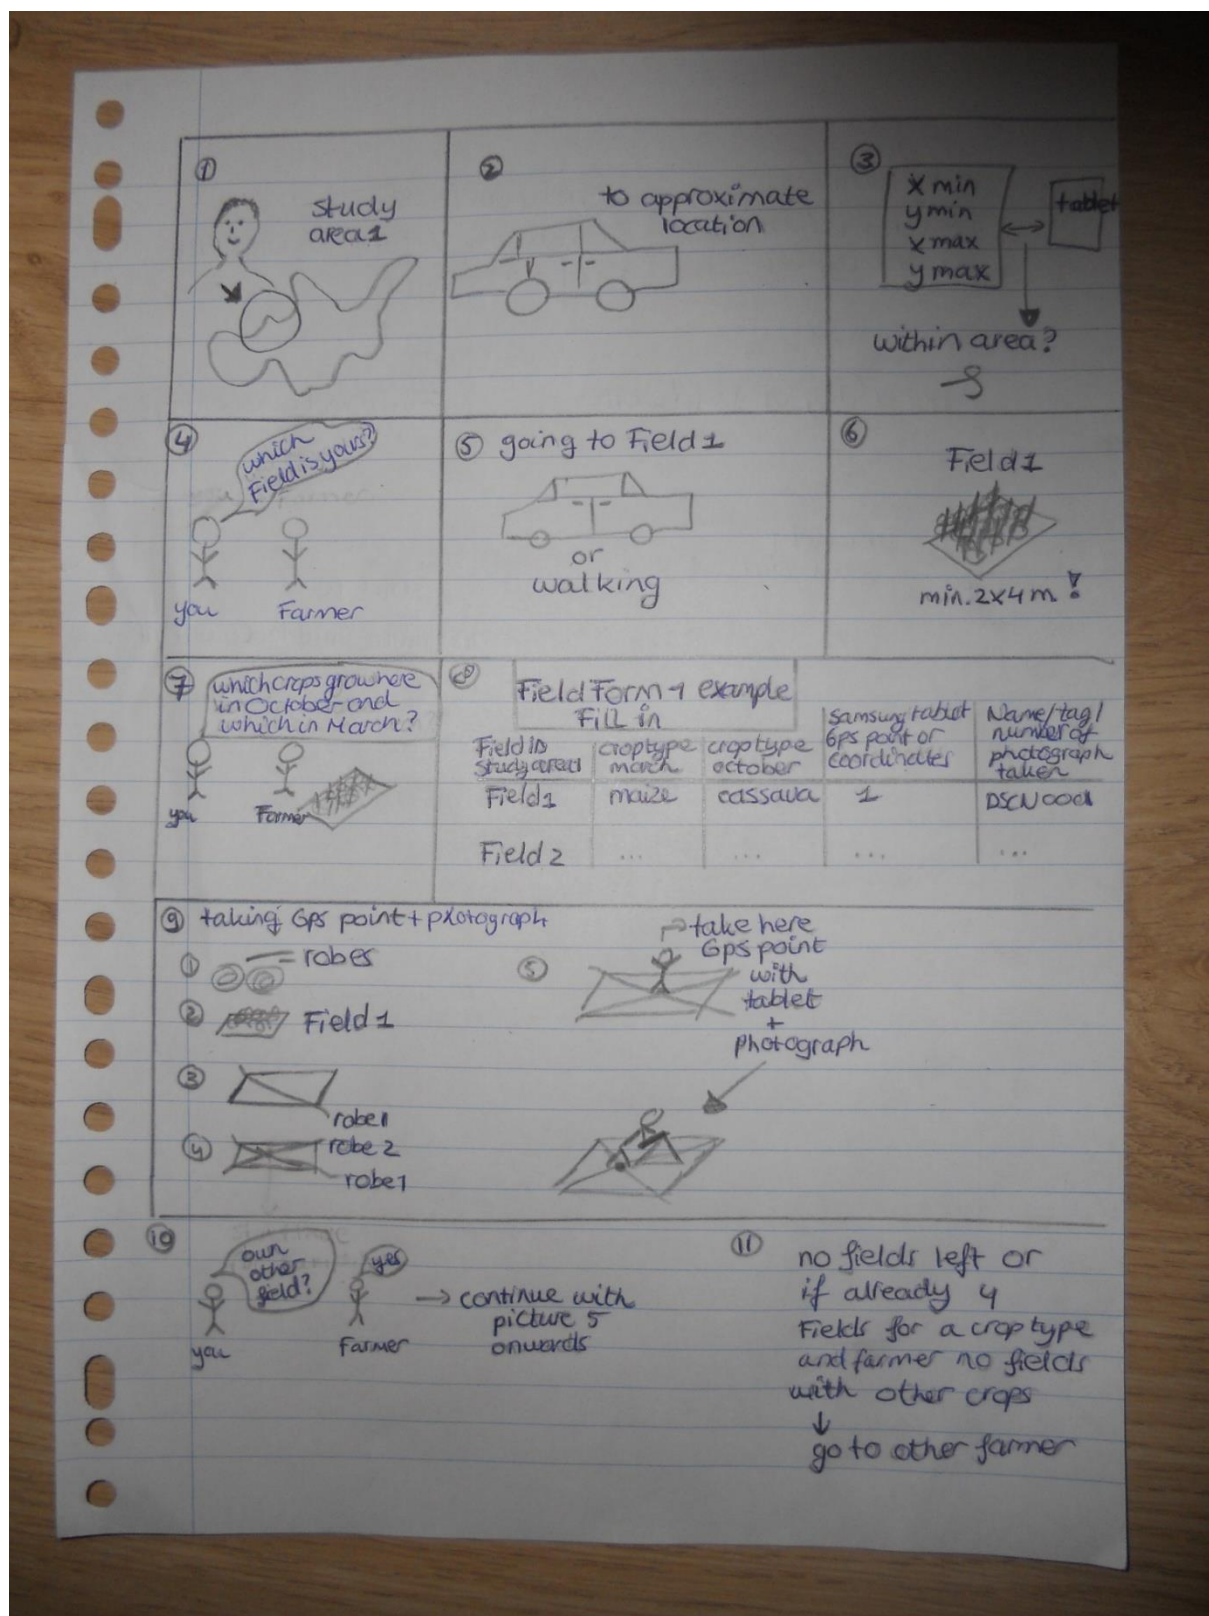 1
study
area 1
2
to approximate
location
3
x min
y min
x max
y max
tablet
within area?
4
which
Field is yours?
you
Farmer
5 going to Field 1
or
walking
6
Field 1
min. 2x4 m !
7
which crops grow here
in October and
which in March?
you
Farmer
8
Field Form-1 example
Fill in
Field in
study area 1
croptype
march
croptype
october
Samsung tablet
Gps point or
coordinates
Name/tag/
number of
photograph
taken
Field 1
maize
cassava
1
Field 2
...
...
...
...
9 taking Gps point + photograph
1
robes
2
Field 1
3
robe 1
4
robe 2
robe 1
5
take here
Gps point
with
tablet
+
photograph
10
own
other
field?
yes
you
Farmer
→ continue with
picture 5
onwards
11
no fields left or
if already 4
Fields for a crop type
and farmer no fields
with other crops
↓
go to other farmer